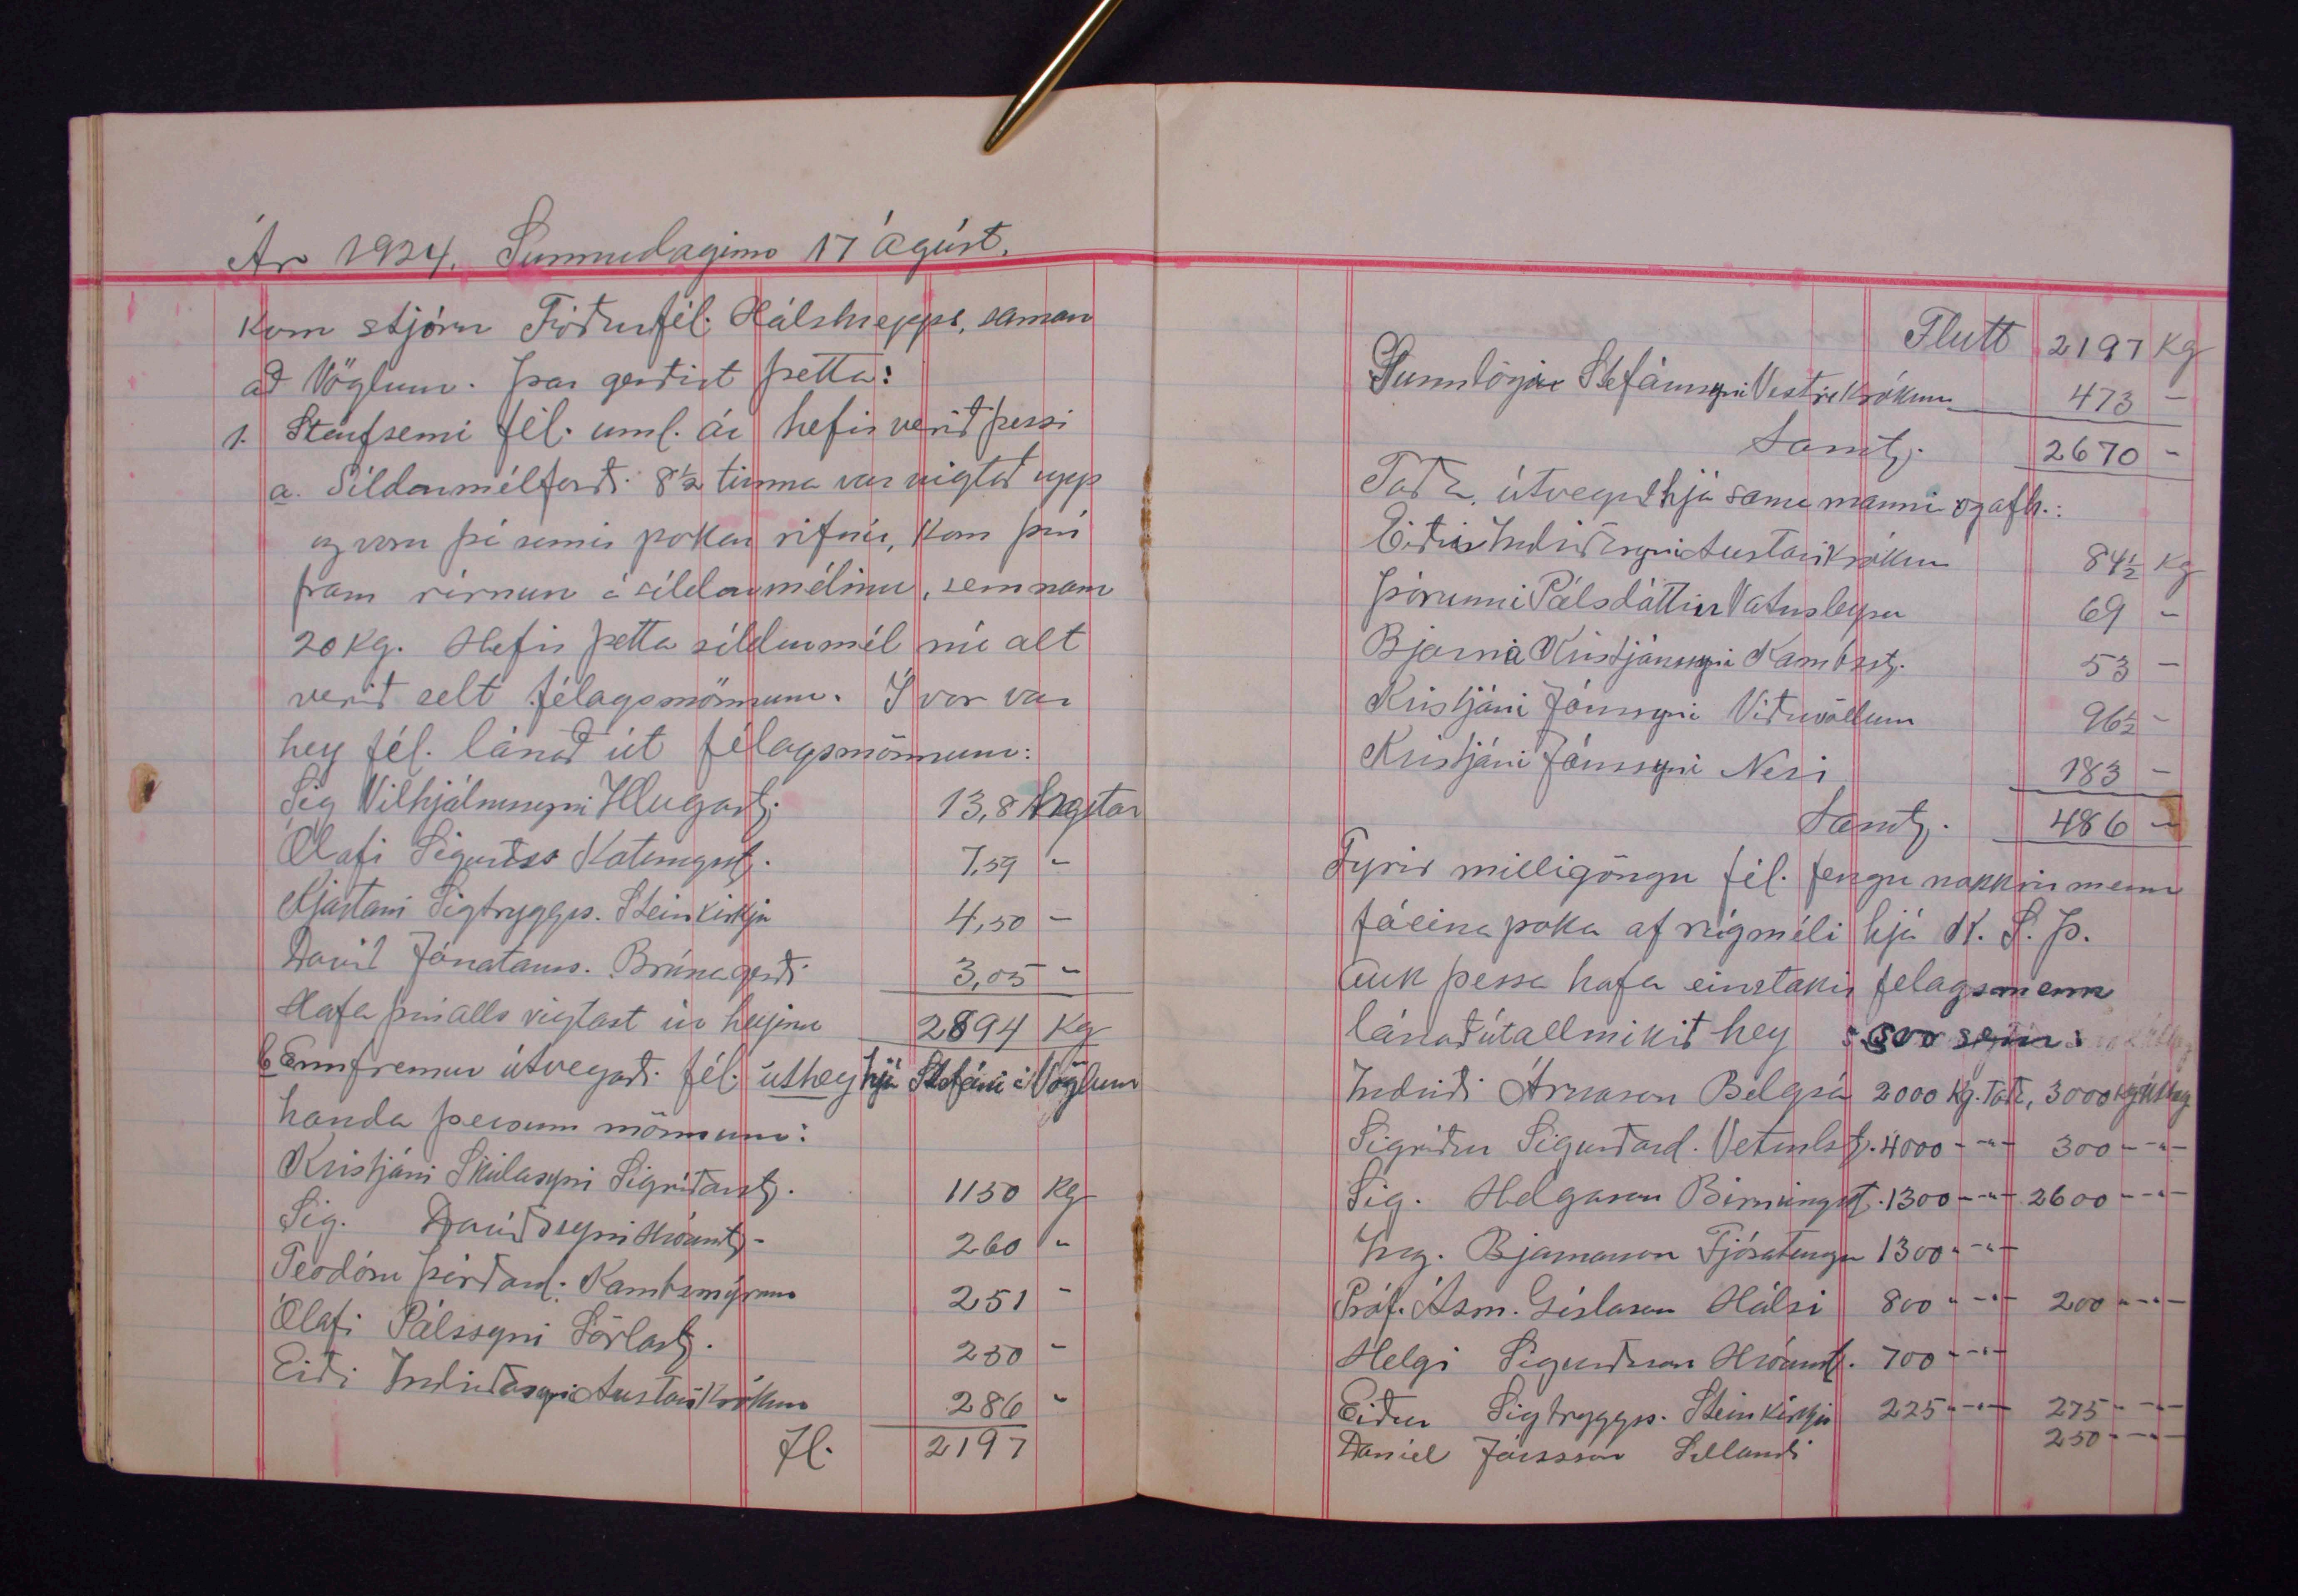 Ár 1924. Sunnudaginn 17 ágúst.
kom stjórn Fóðurfél. Hálshrepps, saman
að Vöglum. Þar gerðist þetta:
1. Starfsemi fél. uml. ár hefir verið þessi
a. Síldarmélforði 8½ tunna var vigtað upp
og voru þá sumir pokar rifnir, kom því
fram rírnun á síldarmélinu, sem nam
20 kg. Hefir þetta síldarmél nú alt
verið selt félagsmönnum. Í vor var
hey fél. lánað út félagsmönnum:
Sig Vilhjálmssyni Illugast. 13,8 hestar
Ólafi Sigurðss Kotungsst. 7,59 "
Kjartani Sigtryggs. Steinkirkju 4,50 "
Davíð Jónatans. Brúnagerði 3,05 "
Hafa því alls vigtast úr heyinu 2894 kg
b Ennfremur útvegaði fél. úthey hjá Stefáni á Vöglum
handa þessum mönnum:
Kristjáni Skúlasyni Sigríðarst. 1150 kg
Sig. Davíðssyni Hróarst. 260 "
Teodóru Þórðard. Kambsmýrum 251 "
Ólafi Pálssyni Sörlast. 250 "
Eiði Indriðasyni Austarikrókum 286 "
Fl. 2197
Flutt 2197 kg
Gunnlögi Stefánssyni Vestrikrókum 473 "
Samt. 2670 "
Taða útveguð hjá sama manni og afh.:
Eiði Indriðasyni Austarikrókum 84½ kg
Þórunni Pálsdóttir Vatnsleysu 69 "
Bjarna Kristjánssyni Kambsst. 53 "
Kristjáni Jónssyni Víðivöllum 96½ "
Kristjáni Jónssyni Nesi 183 "
Samt. 486 "
Fyrir milligöngu fél. fengu nokkrir menn
fáeina poka af rúgméli hjá K. S. Þ.
Auk þessa hafa einstakir félagsmenn
lánað út allmikið hey svo sem:
Indriði Árnason Belgsá 2000 kg. taða, 3000 kg úthey
Sigríður Sigurðard. Veturlst. 4000 - " - 300 - " -
Sig. Helgason Birningsst. 1300 - " - 2600 - " -
Ing. Bjarnason Fjósatungu 1300 - " -
Próf. Ásm. Gíslason Hálsi 800 - " - 200 - " -
Helgi Sigurðsson Hróarst. 700 - " -
Eiður Sigtryggs. Steinkirkju 225 - " - 275 - " -
Daníel Jónsson Sellandi 250 - " -